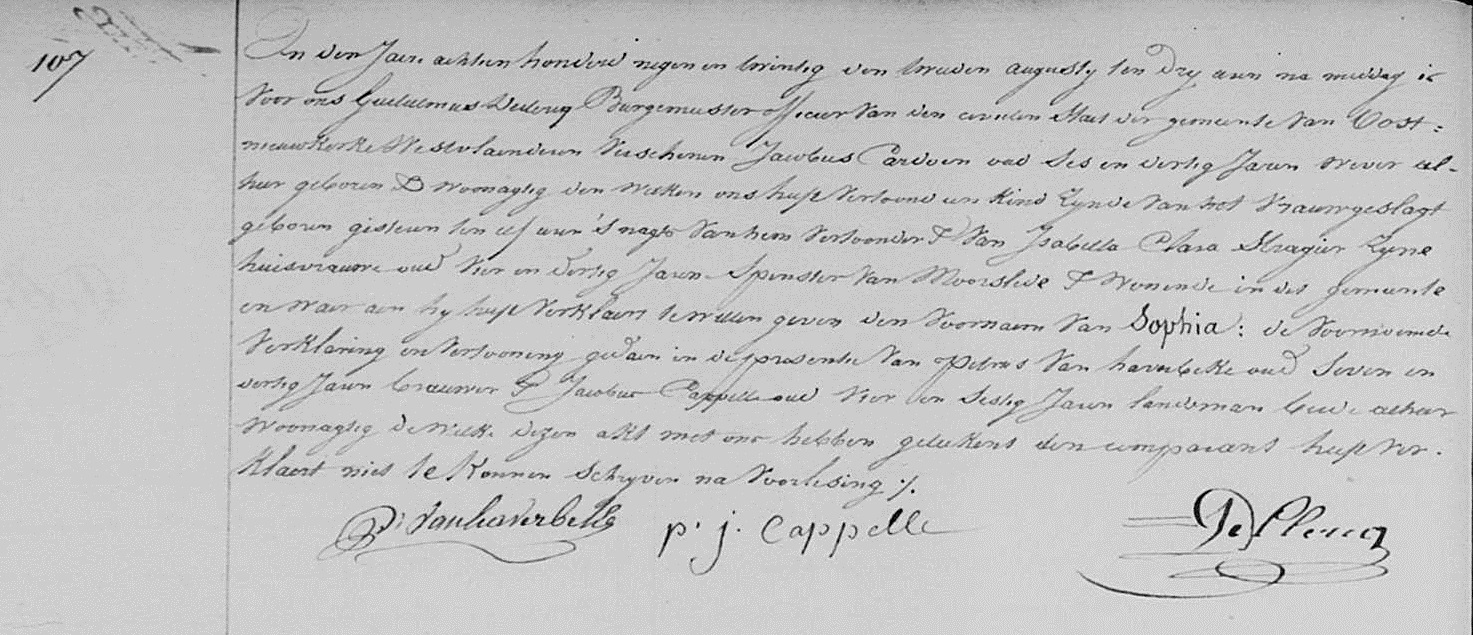 107
In den Jare achtien honderd negen en twintig den tweeden augusty ten dry uren na middag is
Voor ons Guilielmus Declercq Burgemeester officier Van den civielen Staet der gemeente Van Oost=
nieuwkerke Westvlaenderen Verschenen Jacobus Pardoen oud Ses en dertig Jaren wever al-
hier geboren & Woonagtig den welken ons heeft Vertoond een Kind Zynde Van het Vrauwgeslagt
geboren gisteren ten elf uren 's nagts Van hem Vertoonder & Van Isabella Clara Stragier Zyne
huisvrauwe oud Vier en dertig Jaren Spinster Van Moorslede & Wonende in des gemeente
en waer aen hy heeft Verklaert te willen geven den Voornaem Van Sophia: de Voornoemde
Verklaring en Vertooning gedaen in de presentie Van Petrus Van haverbeke oud Seven en
dertig Jaren brauwer & Jacobus Cappelle oud Vier en Sestig Jaren landsman beide alhier
Woonagtig dewelke dezen akt met ons hebben geteekent den comparant heeft Ver-
klaert niet te konnen Schryven na Voorlesing ./.
P: Vanhaverbeke p. j. Cappelle DeClercq